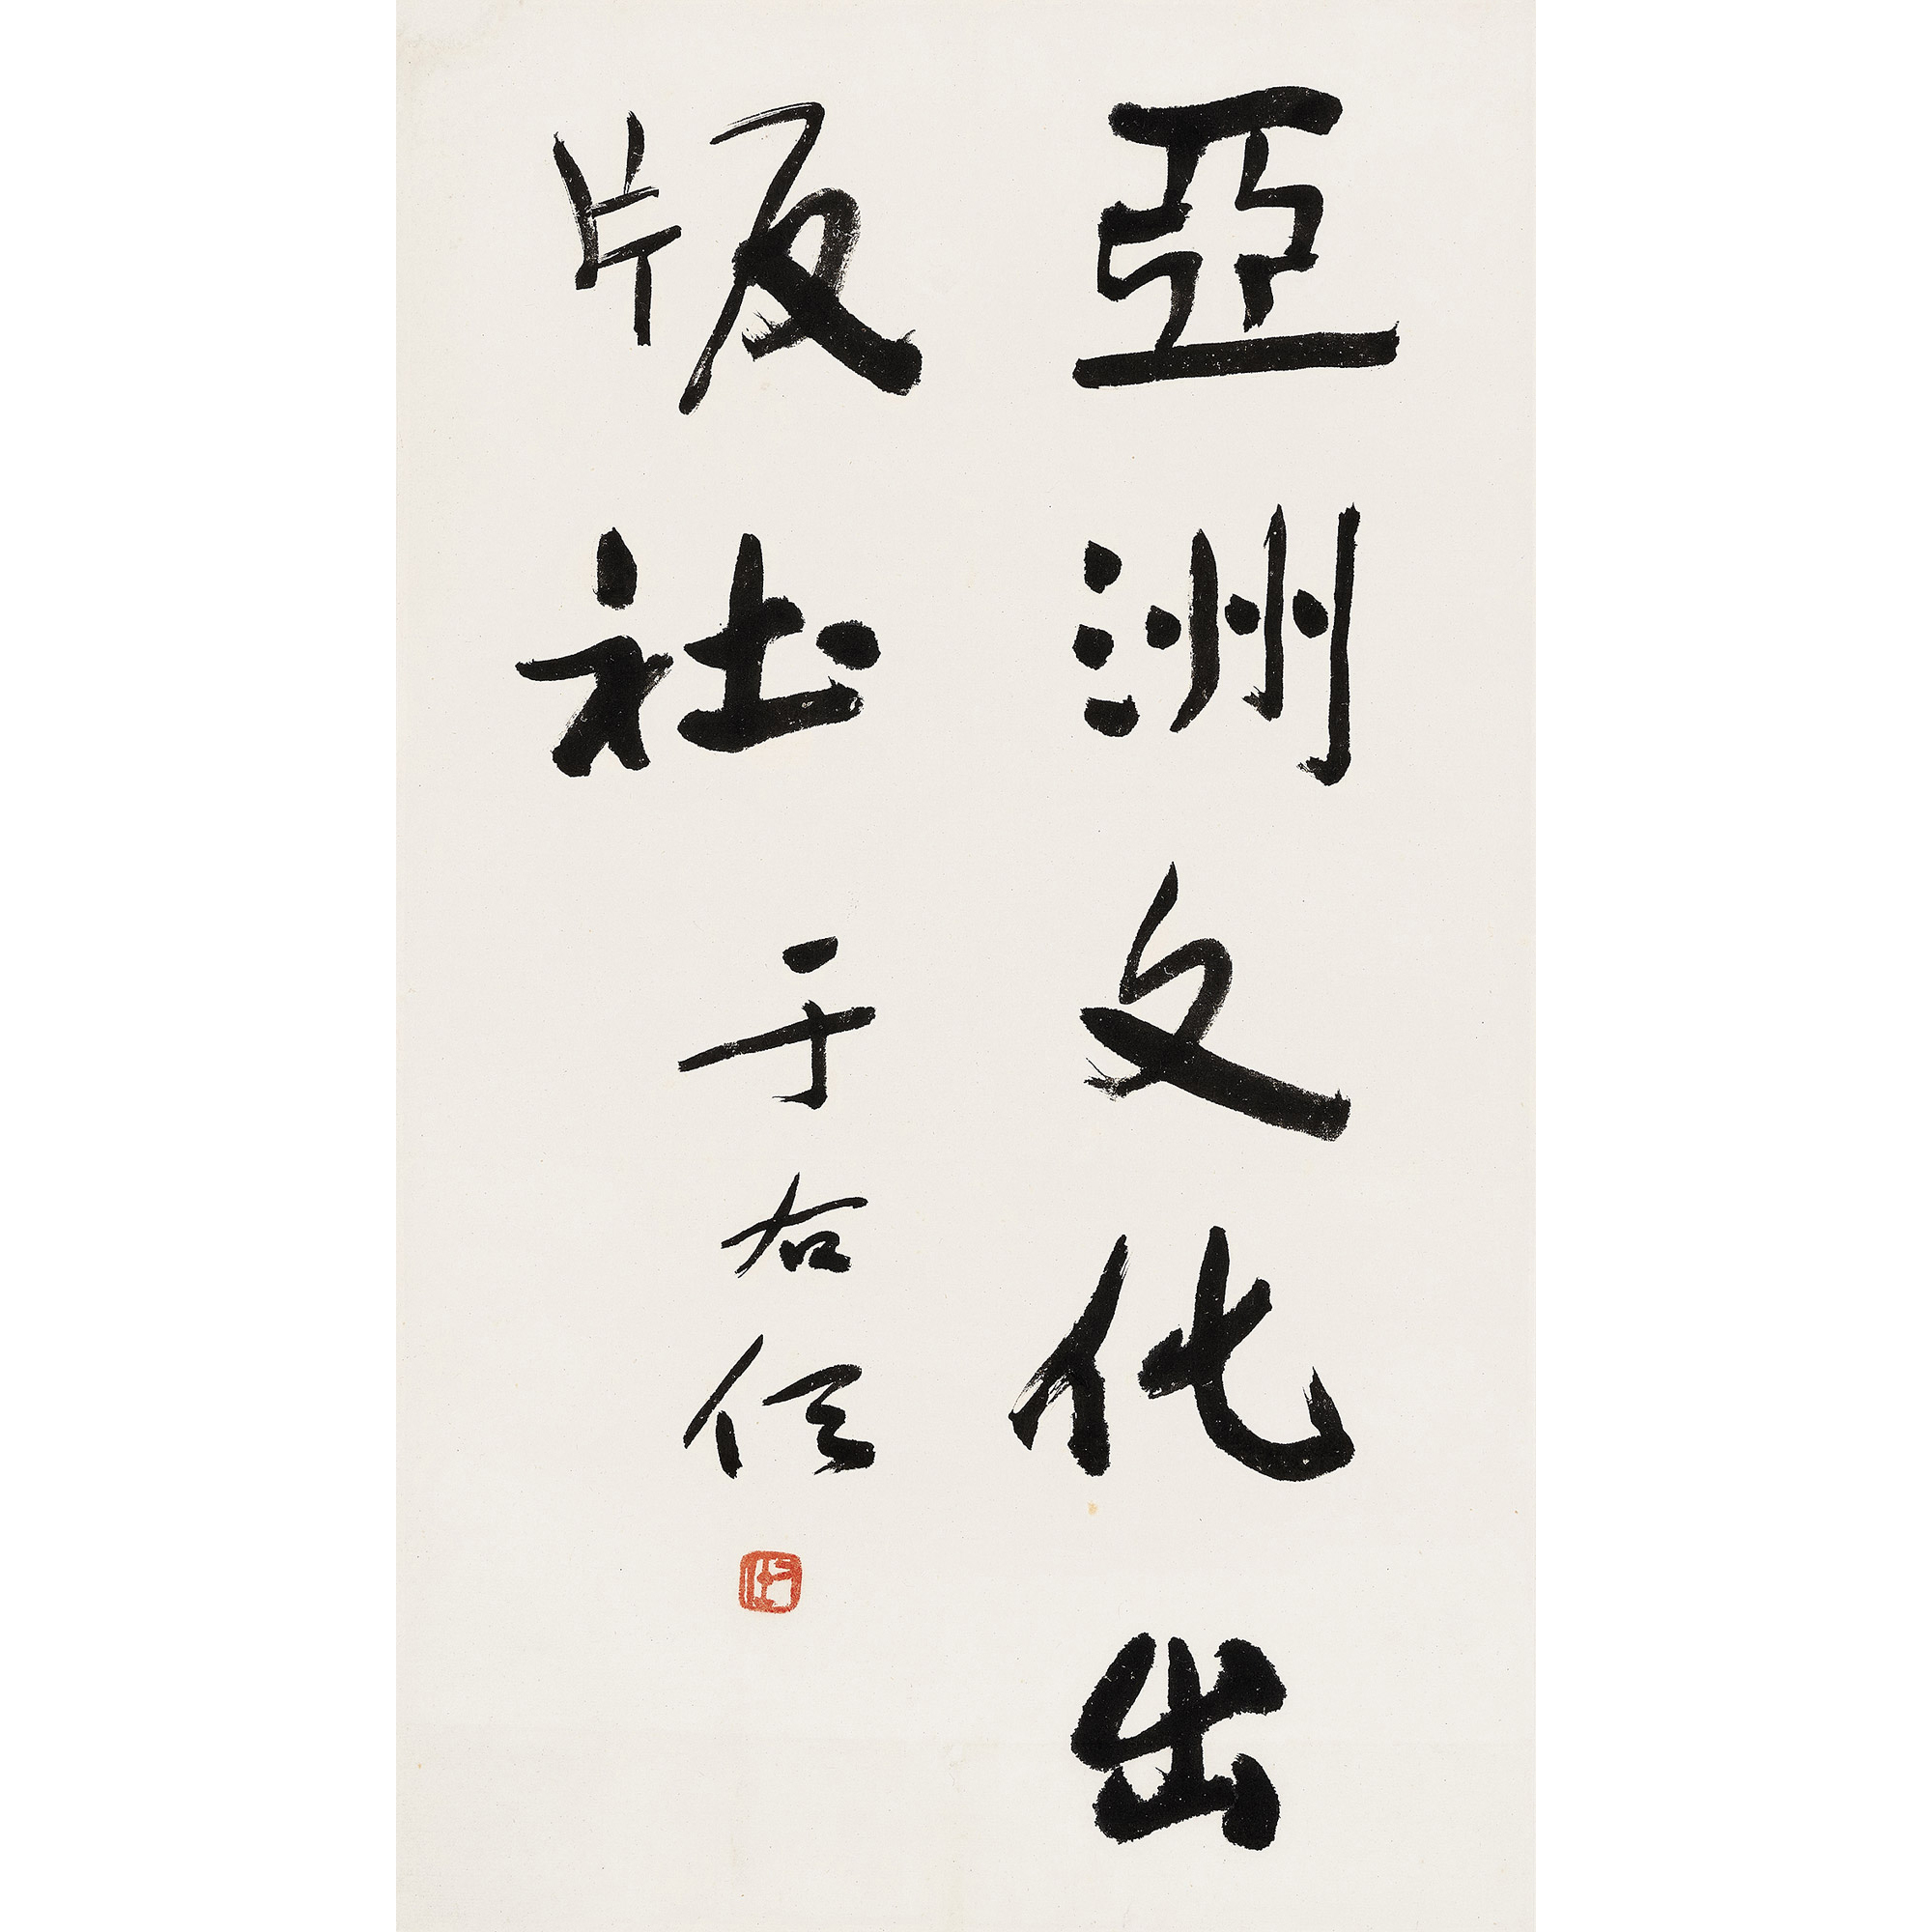 亞洲文化出
版社
于右任